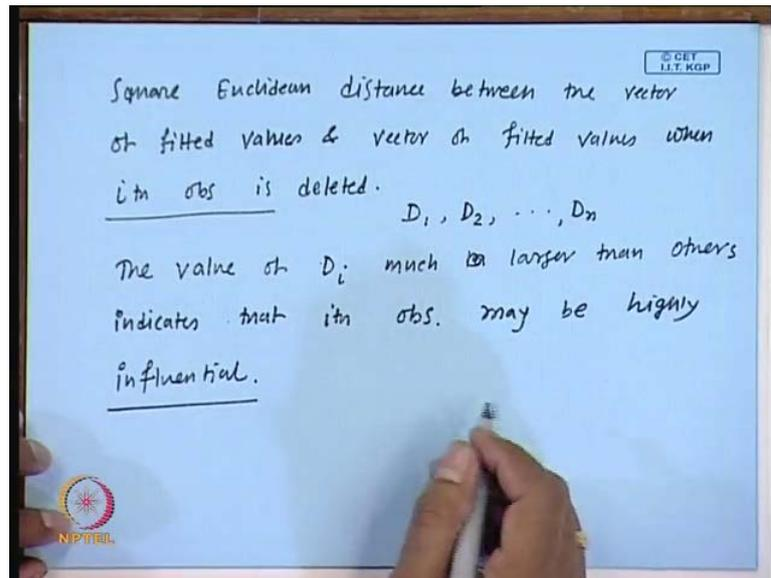 © CET
I.I.T. KGP
Square Euclidean distance between the vector
of fitted values & vector of fitted values when
ith obs is deleted.
D1, D2, ..., Dn
The value of Di much larger than others
indicates that ith obs. may be highly
influential.
NPTEL